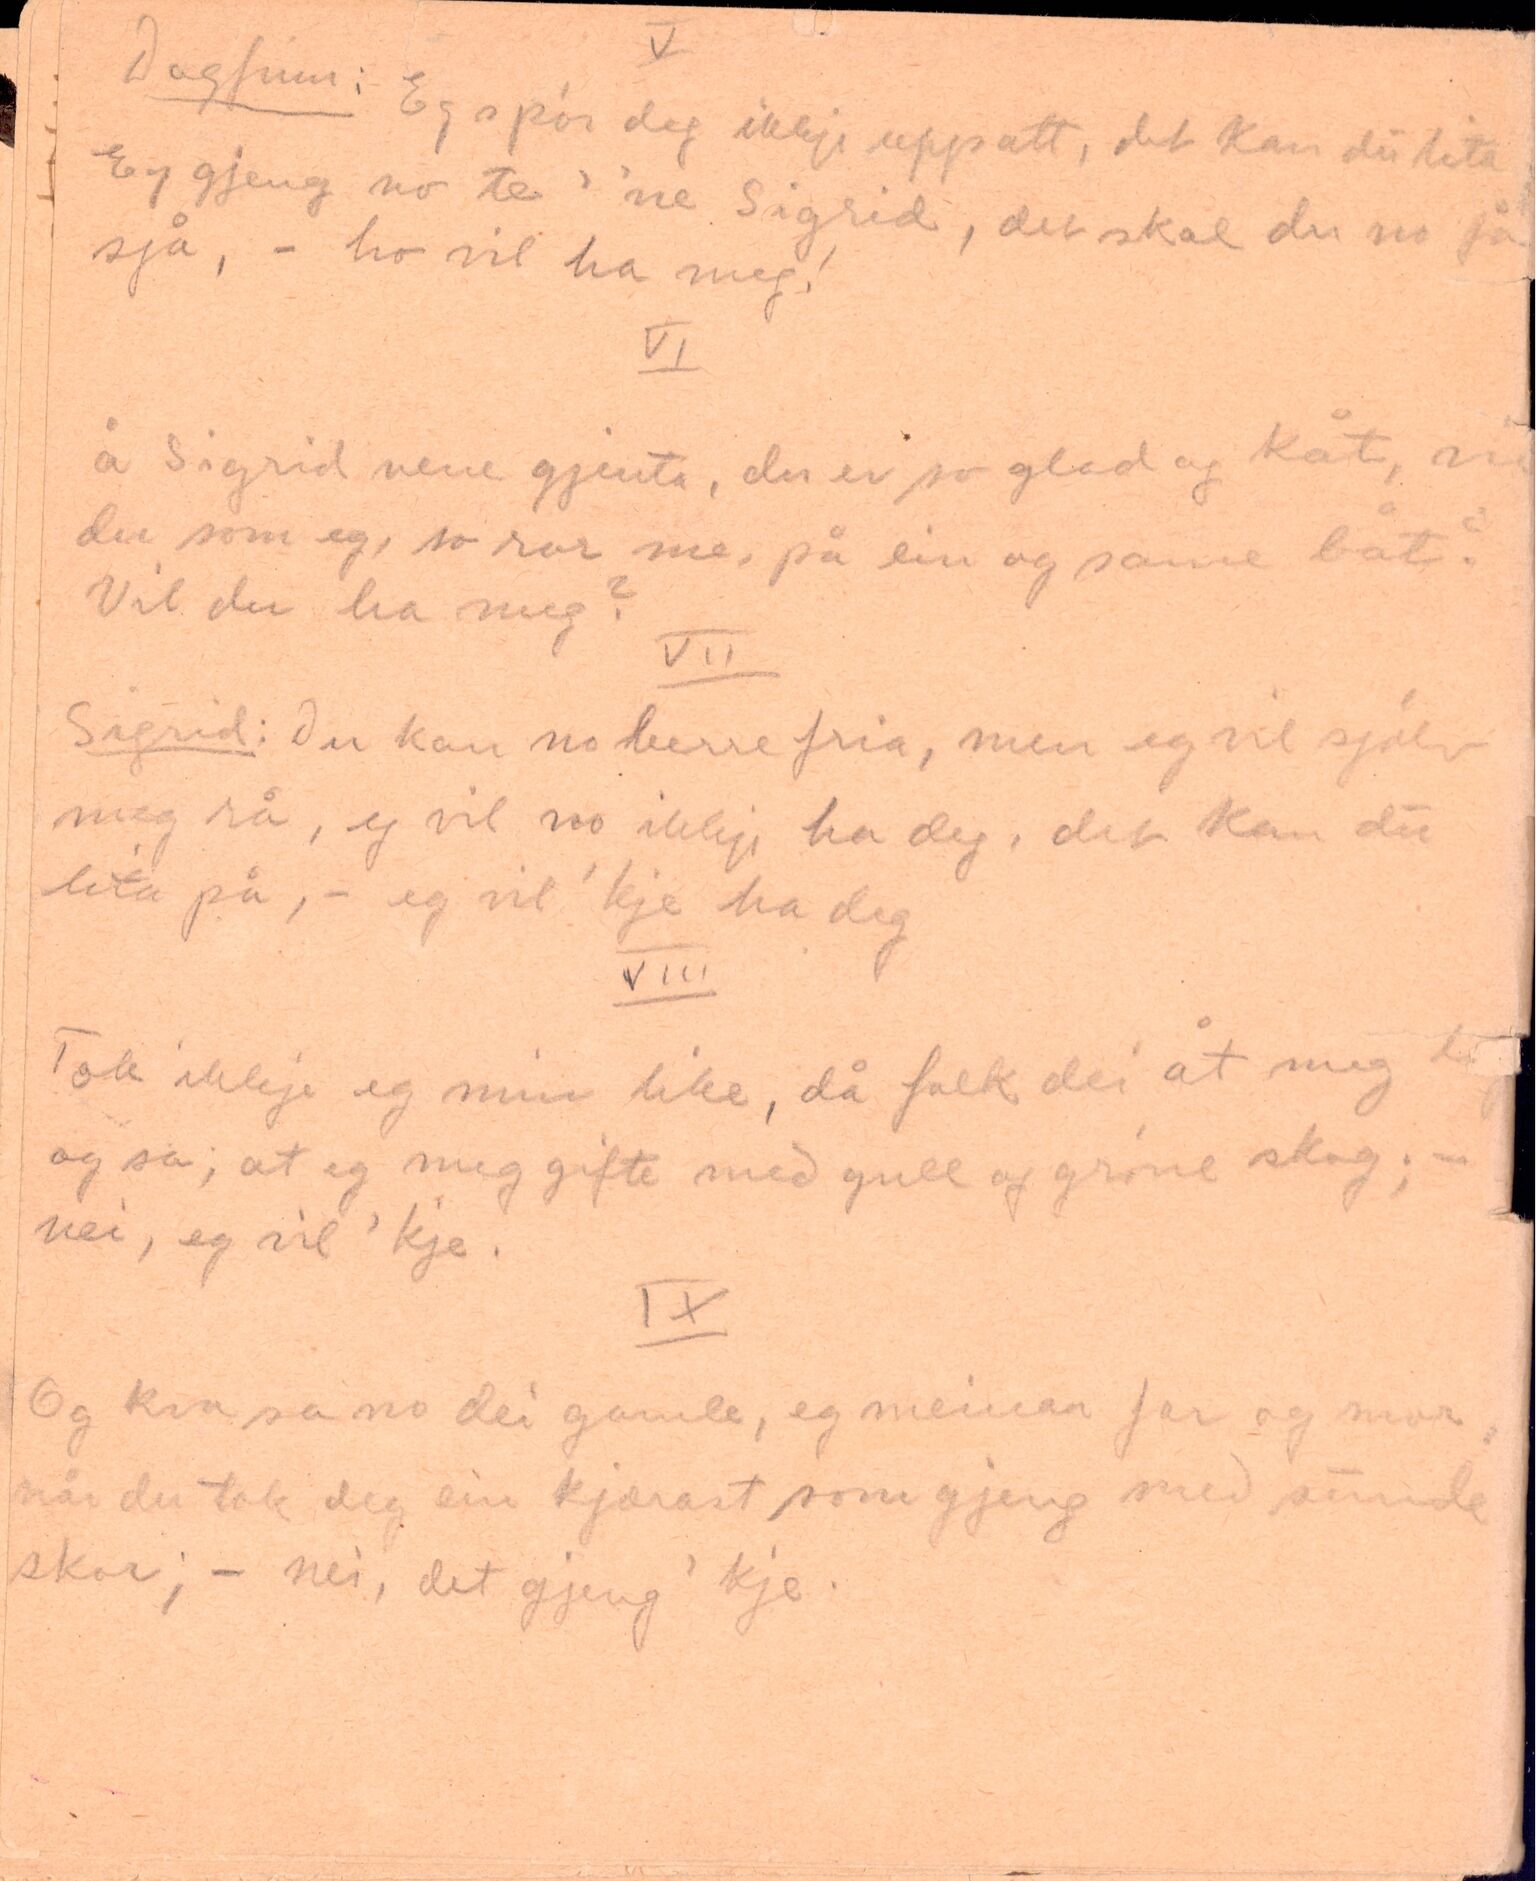 V
Dagfinn: Eg spór deg ikkje uppatt, det kan du lita
Eg gjeng no te ''ne Sigrid, det skal du no få
sjå, - ho vil ha meg!
VI
å Sigrid vene gjenta, du er so glad og kåt,
du som eg, so ror me, på ein og same båt?
Vil du ha meg?
VII
Sigrid: Du kan no berre fria, men eg vil sjólv
meg rå, eg vil no ikkje ha deg, det kan du
lita på, - eg vil 'kje ha deg
VIII
Tok ikkje eg min like, då folk dei åt meg
og sa; at eg meg gifte med gull og gróne skog; -
nei, eg vil 'kje.
IX
Og kva sa no dei gamle, eg meinar far og mor,
når du tok deg ein kjærast som gjeng med sunde
skor; - nei, det gjeng 'kje.